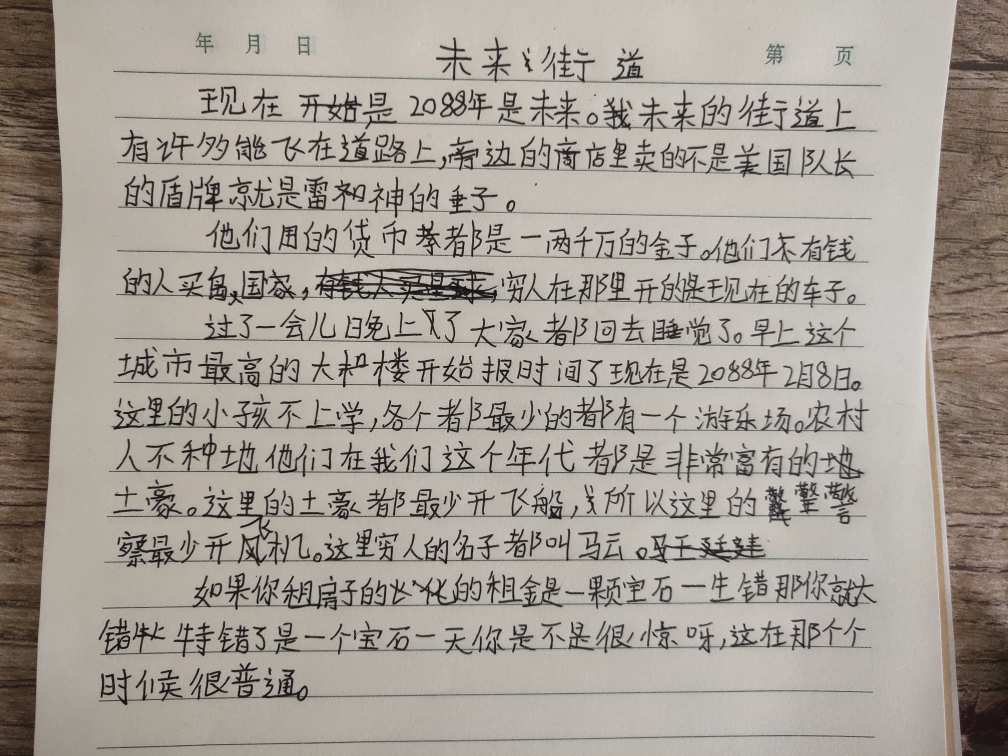 年 月 日
第 页
未来之街道
现在开始是2088年是未来。我未来的街道上
有许多能飞在道路上,旁边的商店里卖的不是美国队长
的盾牌就是雷和神的垂子。
他们用的货币都是一两千万的金子。他们有钱
的人买岛、国家,穷人在那里开的是现在的车子。
过了一会儿晚上了大家都回去睡觉了。早上这个
城市最高的大楼开始报时间了现在是2088年2月8日。
这里的小孩不上学,各个都最少的都有一个游乐场。农村
人不种地他们在我们这个年代都是非常富有的地
土豪。这里的土豪都最少开飞船,所以这里的警
察最少开飞机。这里穷人的名子都叫马云。
如果你租房子的化的租金是一颗宝石一生错那你就大
错特错了是一个宝石一天你是不是很惊呀,这在那个个
时候很普通。